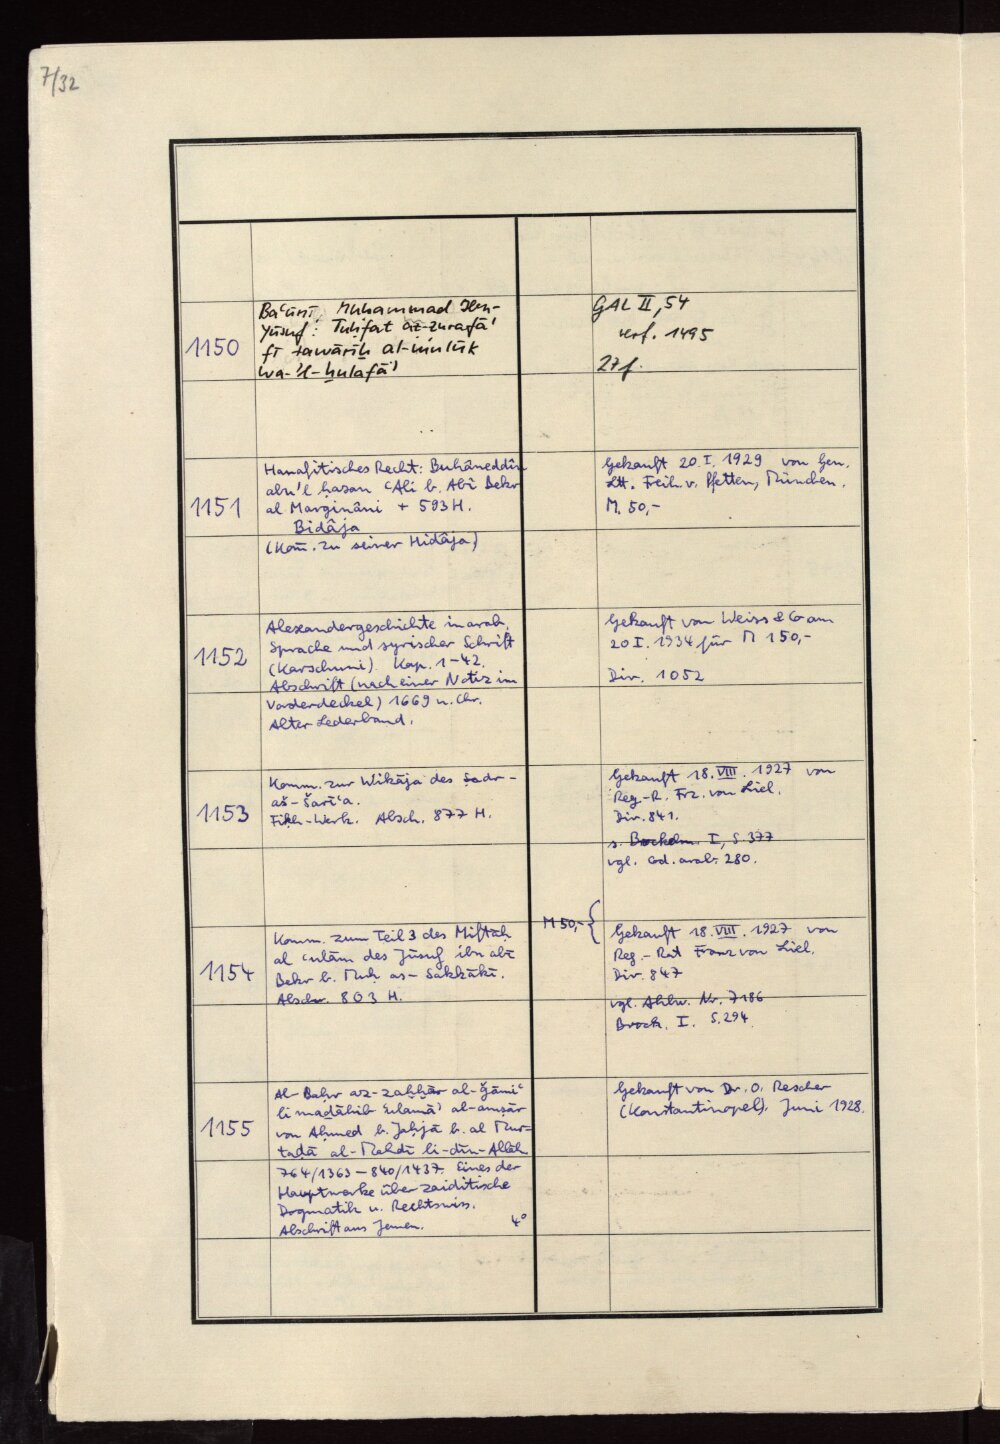 7/32
1150
Bāʿūnī, Muhammad Ibn-
Yūsuf: Tuḥfat aẓ-ẓurafāʾ
fī tawārīḫ al-mulūk
wa-ʾl-ḫulafāʾ
GAL II, 54
verf. 1495
27 f.
1151
Hanafitisches Recht: Buhâneddîn
abu'l ḥasan ʿAli b. Abî Bekr
al Marginâni + 593 H.
Bidâja
(Kom̄. zu seiner Hidâja)
Gekauft 20. I. 1929 von Gen.
Ltt. Freih. v. Pfetten, München.
M. 50,-
1152
Alexandergeschichte in arab.
Sprache und syrischer Schrift
(Karschuni). Kap. 1-42.
Abschrift (nach einer Notiz im
Vorderdeckel) 1669 n. Chr.
Alter Lederband.
Gekauft von Weiss & Co am
20 I. 1934 für M 150,-
Div. 1052
1153
Komm. zur Wikāja des Ṣadr-
aš-Šarīʿa.
Fiḳh-Werk. Absch. 877 H.
Gekauft 18. VIII. 1927 von
Reg.-R. Frz. von Liel.
Div. 841.
s. Brockelm. I, S. 377
vgl. Cod. arab. 280.
1154
Komm. zum Teil 3 des Miftāḥ
al ʿulūm des Jūsuf ibn abī
Bekr b. Muḥ as-Sakkākī.
Abschr. 803 H.
M 50,- {
Gekauft 18. VIII. 1927 von
Reg.-Rat Franz von Liel.
Div. 847
vgl. Ahlw. Nr. 7186
Brock. I. S. 294
1155
Al-Baḥr az-zaḫḫār al-ǧāmiʿ
li maḏāhib ʿulamāʾ al-amṣār
von Aḥmed b. Jaḥjā b. al Mur-
taḍā al-Mahdī li-dīn-Allāh
764/1363 – 840/1437. Eines der
Hauptwerke über zaiditische
Dogmatik u. Rechtswiss.
Abschrift aus Jemen. 4°
Gekauft von Dr. O. Rescher
(Konstantinopel). Juni 1928.